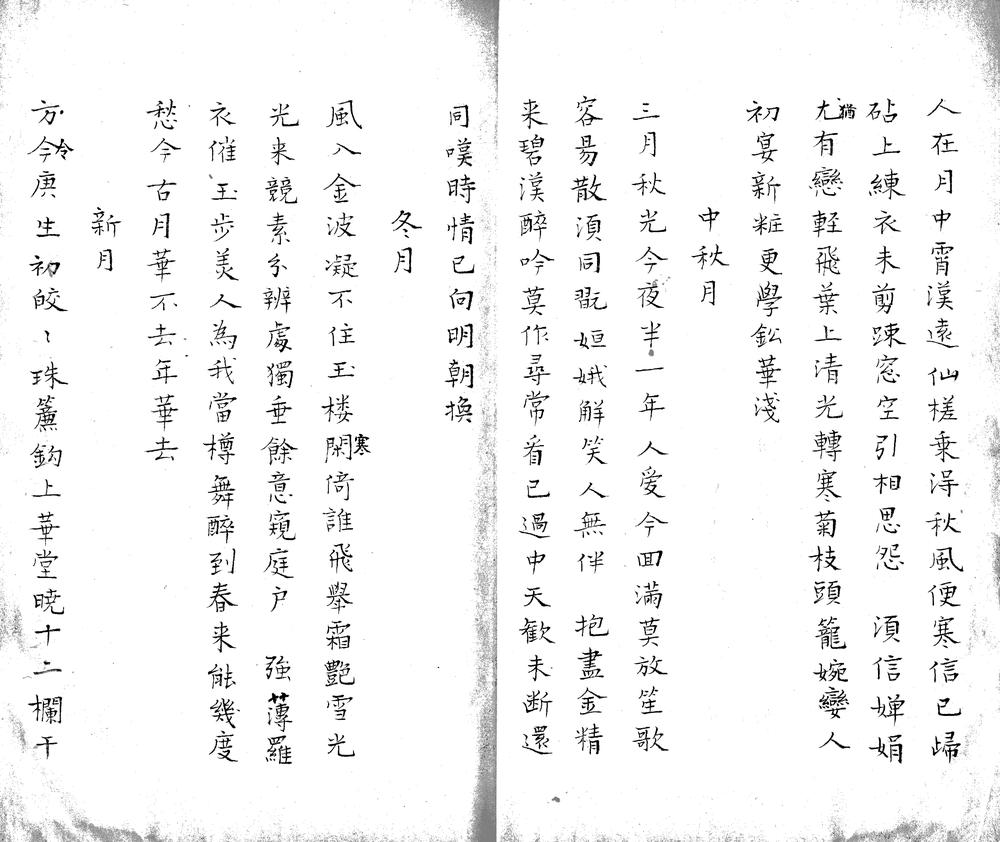 人在月中霄漢遠仙槎乗得秋風便寒信已歸
砧上練衣未剪疎窓空引相思怨　須信嬋娟
尤猶有戀輕飛葉上清光轉寒菊枝頭籠婉孌人
初宴新粧更學鈆華淺
中秋月
三月秋光今夜半一年人愛今回滿莫放笙歌
容易散須同翫姮娥解笑人無伴　抱盡金精
来碧漢醉吟莫作尋常看已過中天歡未断還
同嘆時情已向明朝換
冬月
風入金波凝不住玉楼閑寒倚誰飛舉霜艷雪光
光来競素分辨處獨垂餘意窺庭户　強薄羅
衣催玉步美人為我當樽舞醉到春来能幾度
愁今古月華不去年華去
新月
方今冷庚生初皎〻珠簾鈎上華堂暁十二欄干